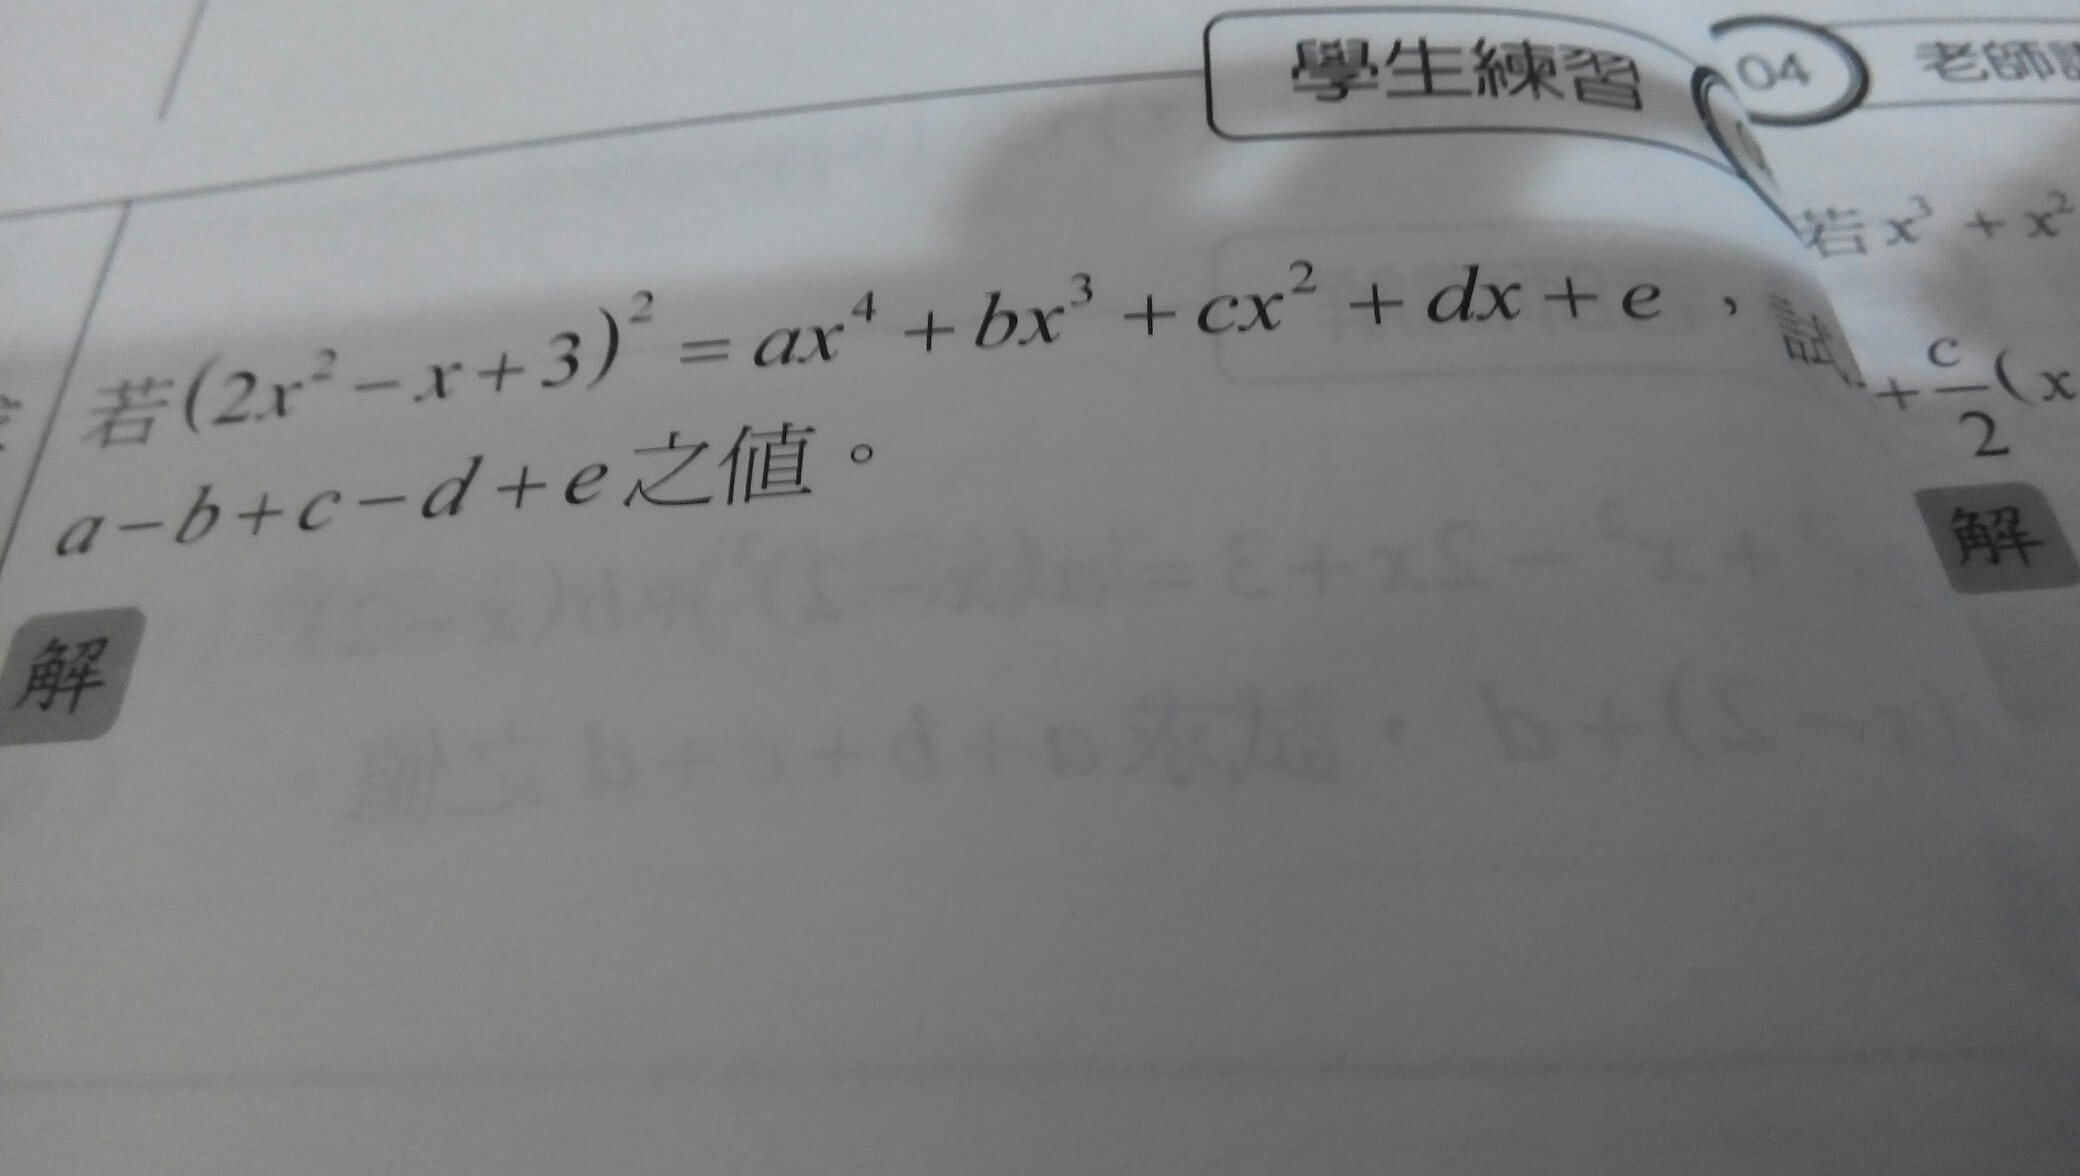 學生練習
04 老師
若(2x² - x + 3)² = ax⁴ + bx³ + cx² + dx + e，試
a - b + c - d + e 之值。
解
若 x³ + x²
+ c/2 (x
解